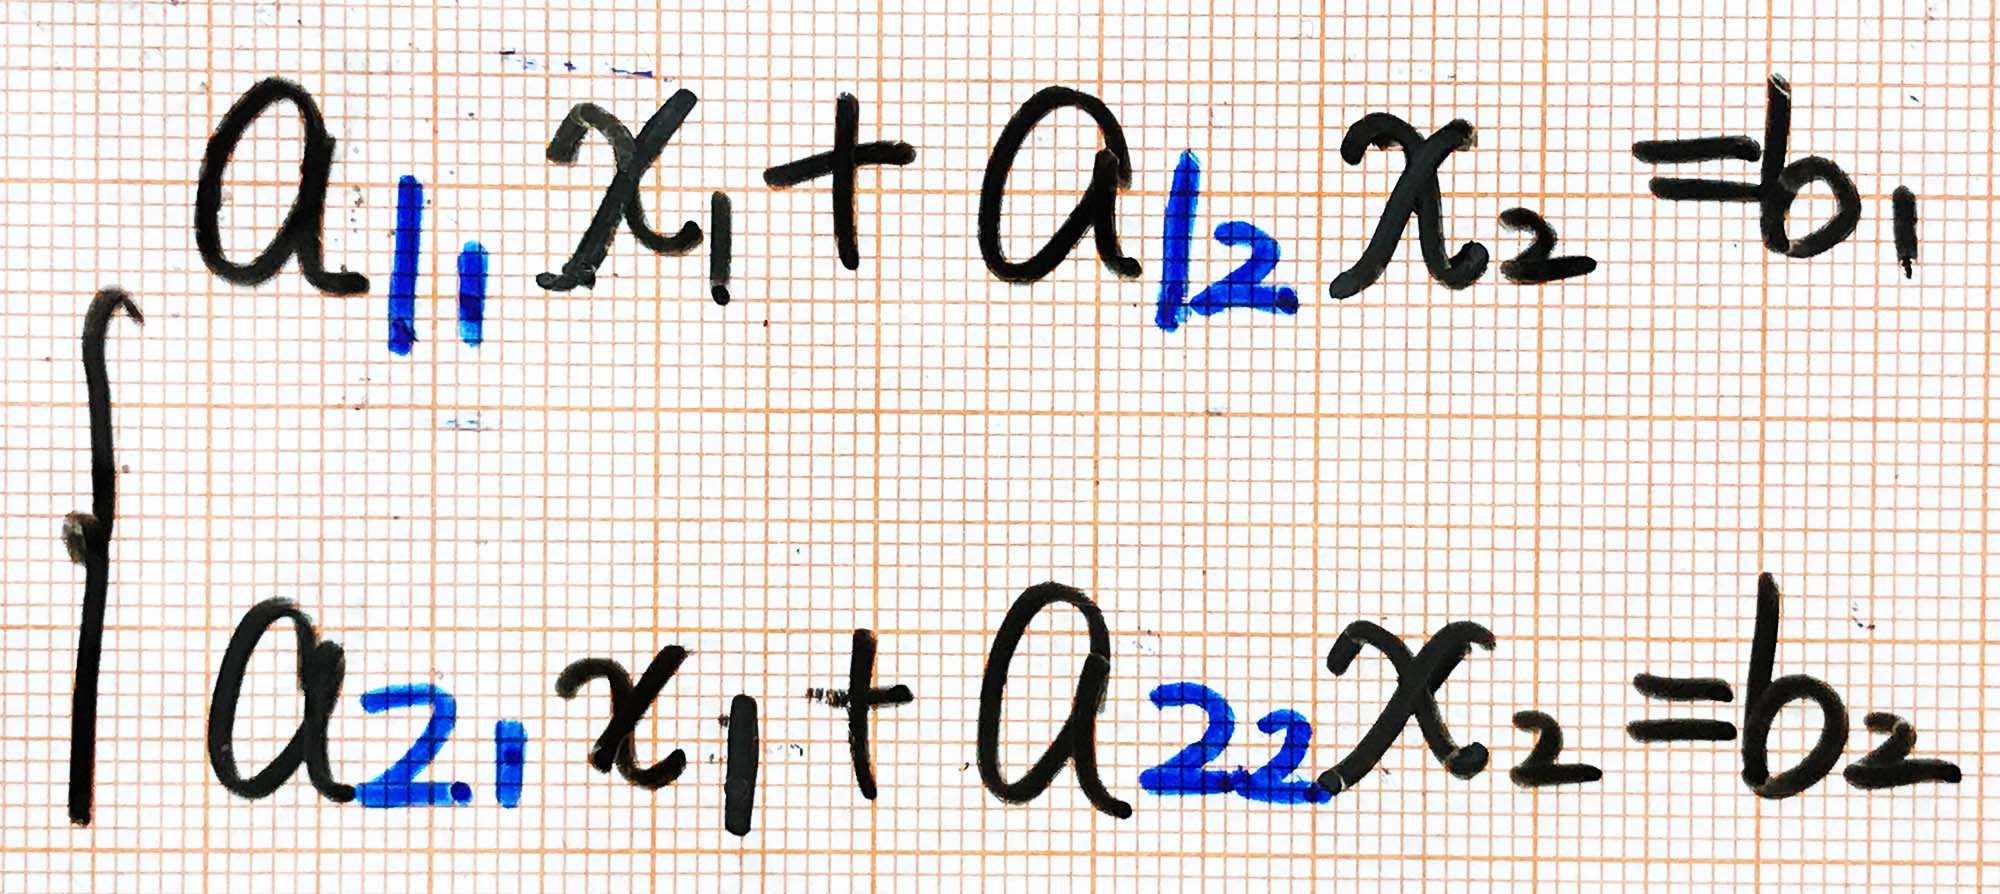 a₁₁x₁+a₁₂x₂=b₁
a₂₁x₁+a₂₂x₂=b₂